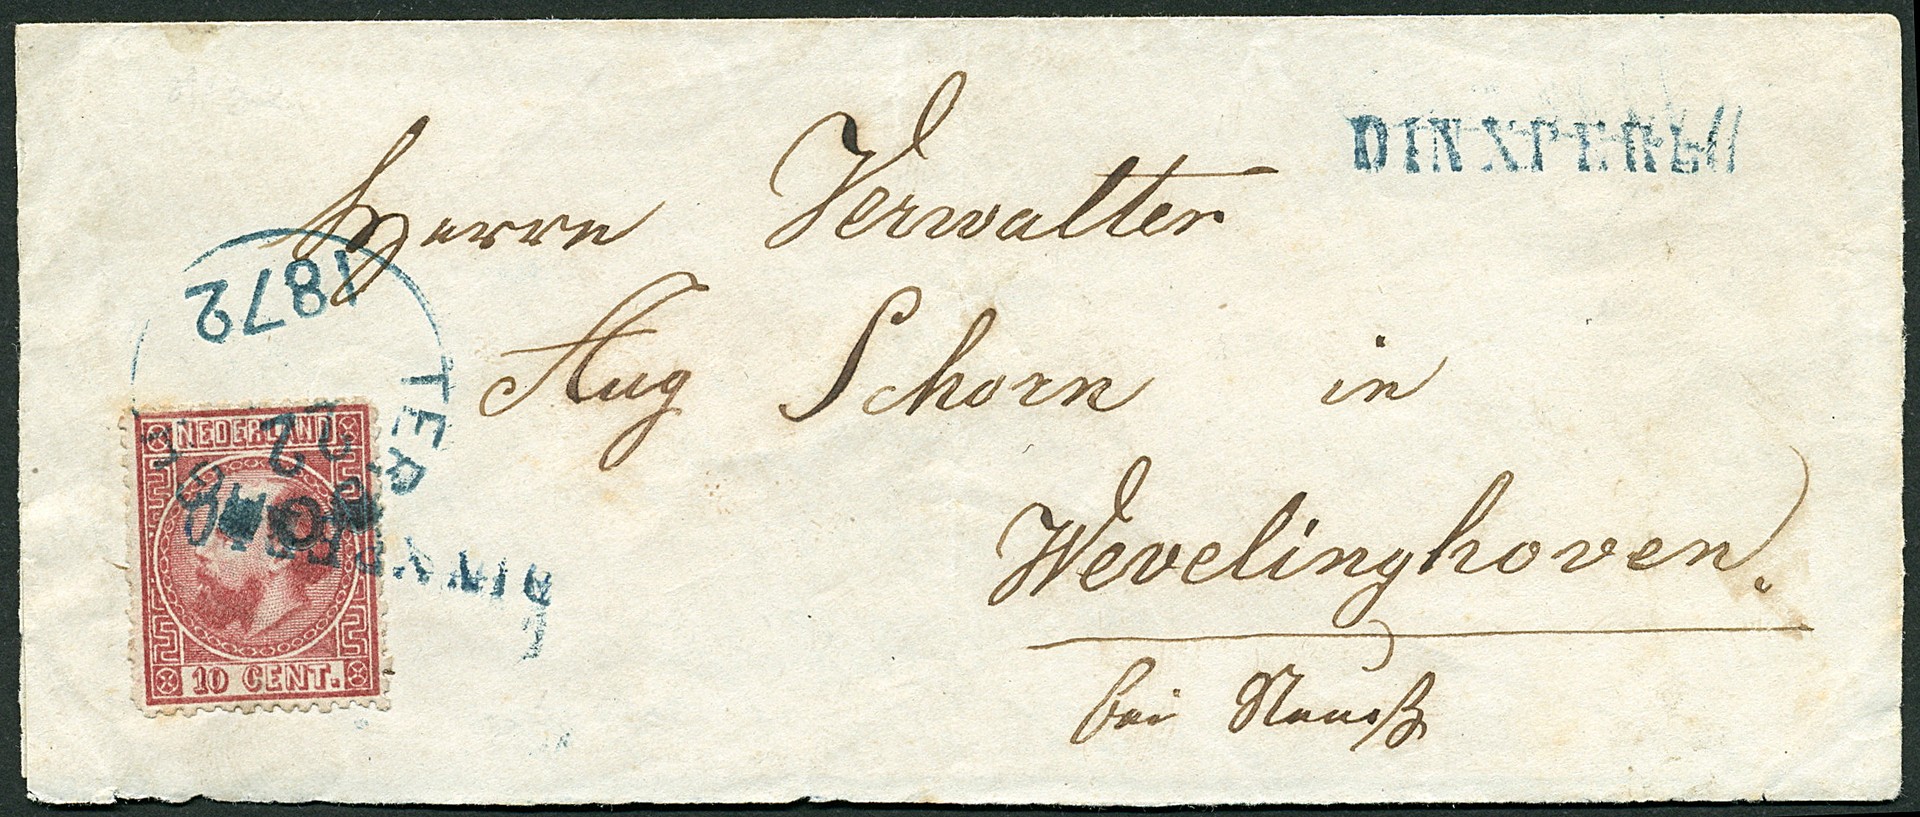 DINXPERLO
Herrn Verwalter
Aug Schorn in
Wevelinghoven.
bei Neuss
1872
NEDERLAND
10 CENT.